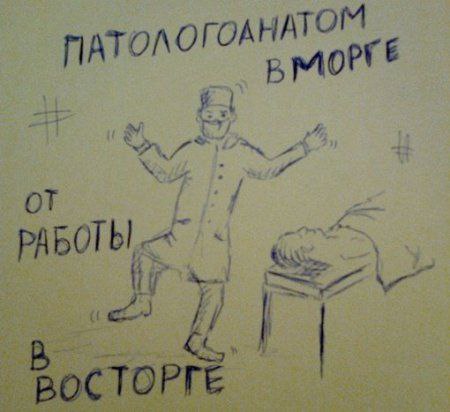 ПАТОЛОГОАНАТОМ
В МОРГЕ
ОТ
РАБОТЫ
В
ВОСТОРГЕ